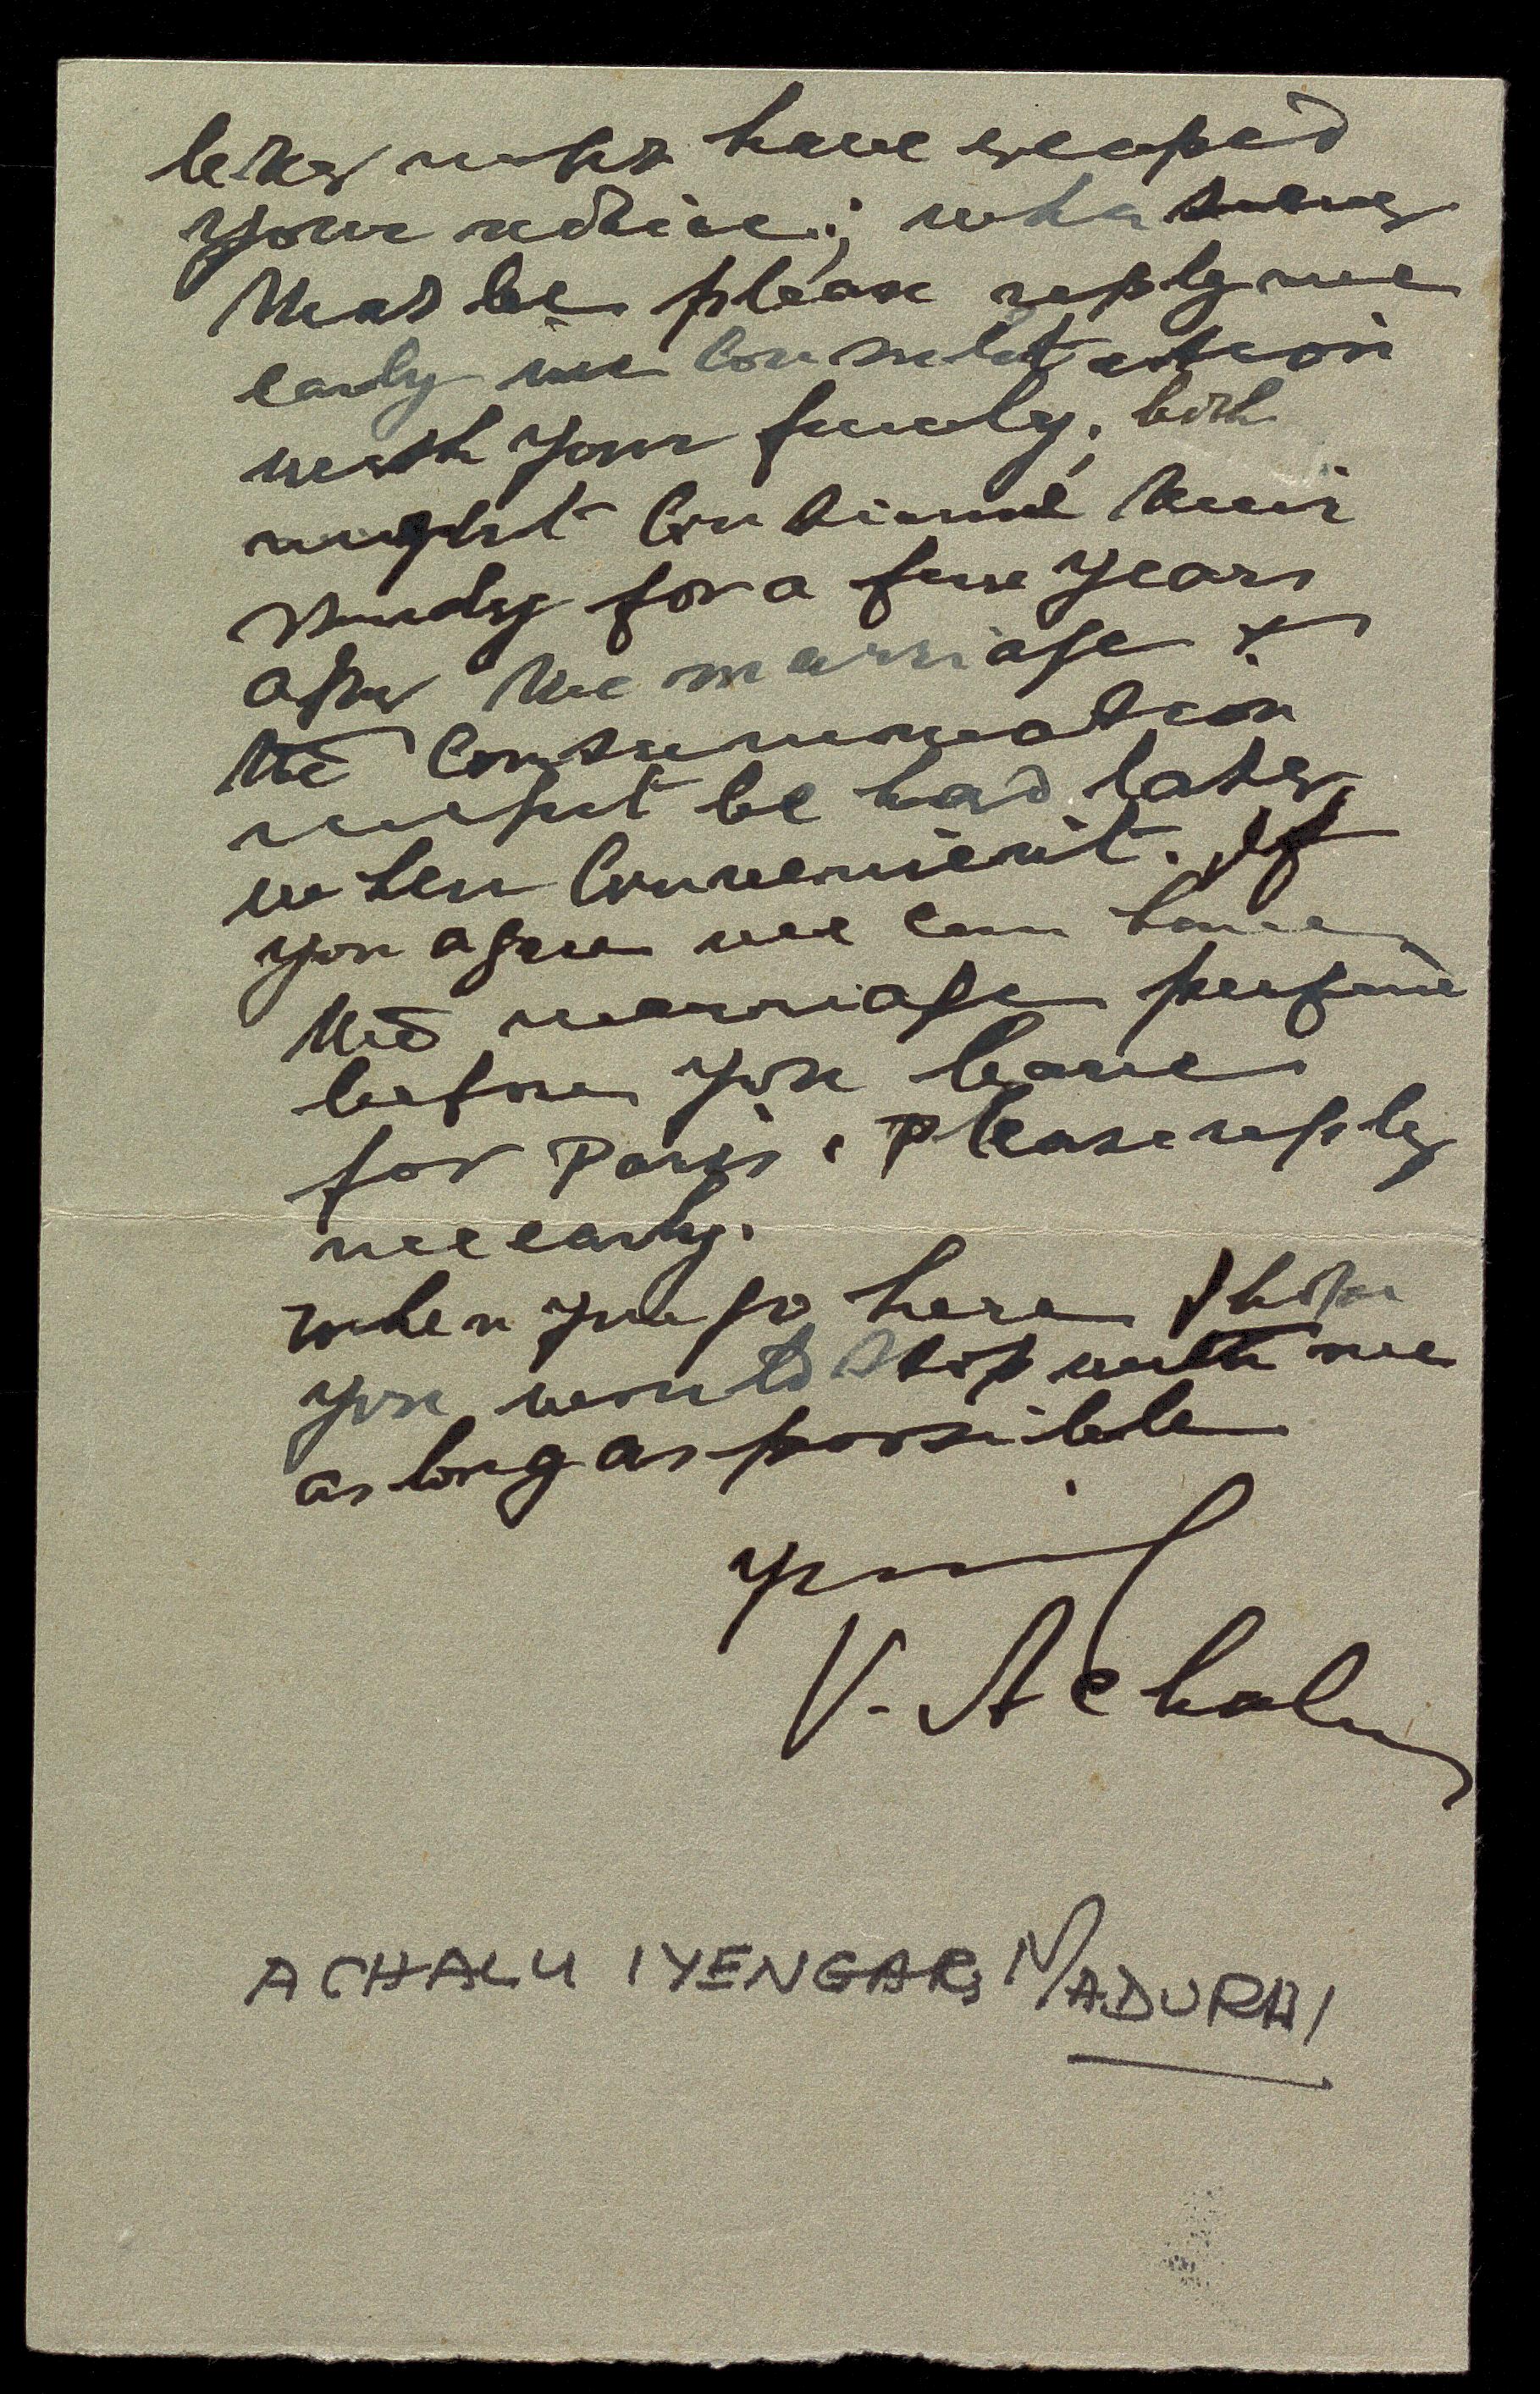 letter might have escaped
your notice; whatever
that be please reply me
early in consultation
with your family; both
might continue their
study for a few years
after the marriage &
the consummation
might be had later
when convenient. If
you agree we can have
the marriage
before you leave
for Paris. Please reply
me early.
When you go here I hope
you would stop with me
as long as possible
V. Achalu
ACHALU IYENGAR, MADURAI